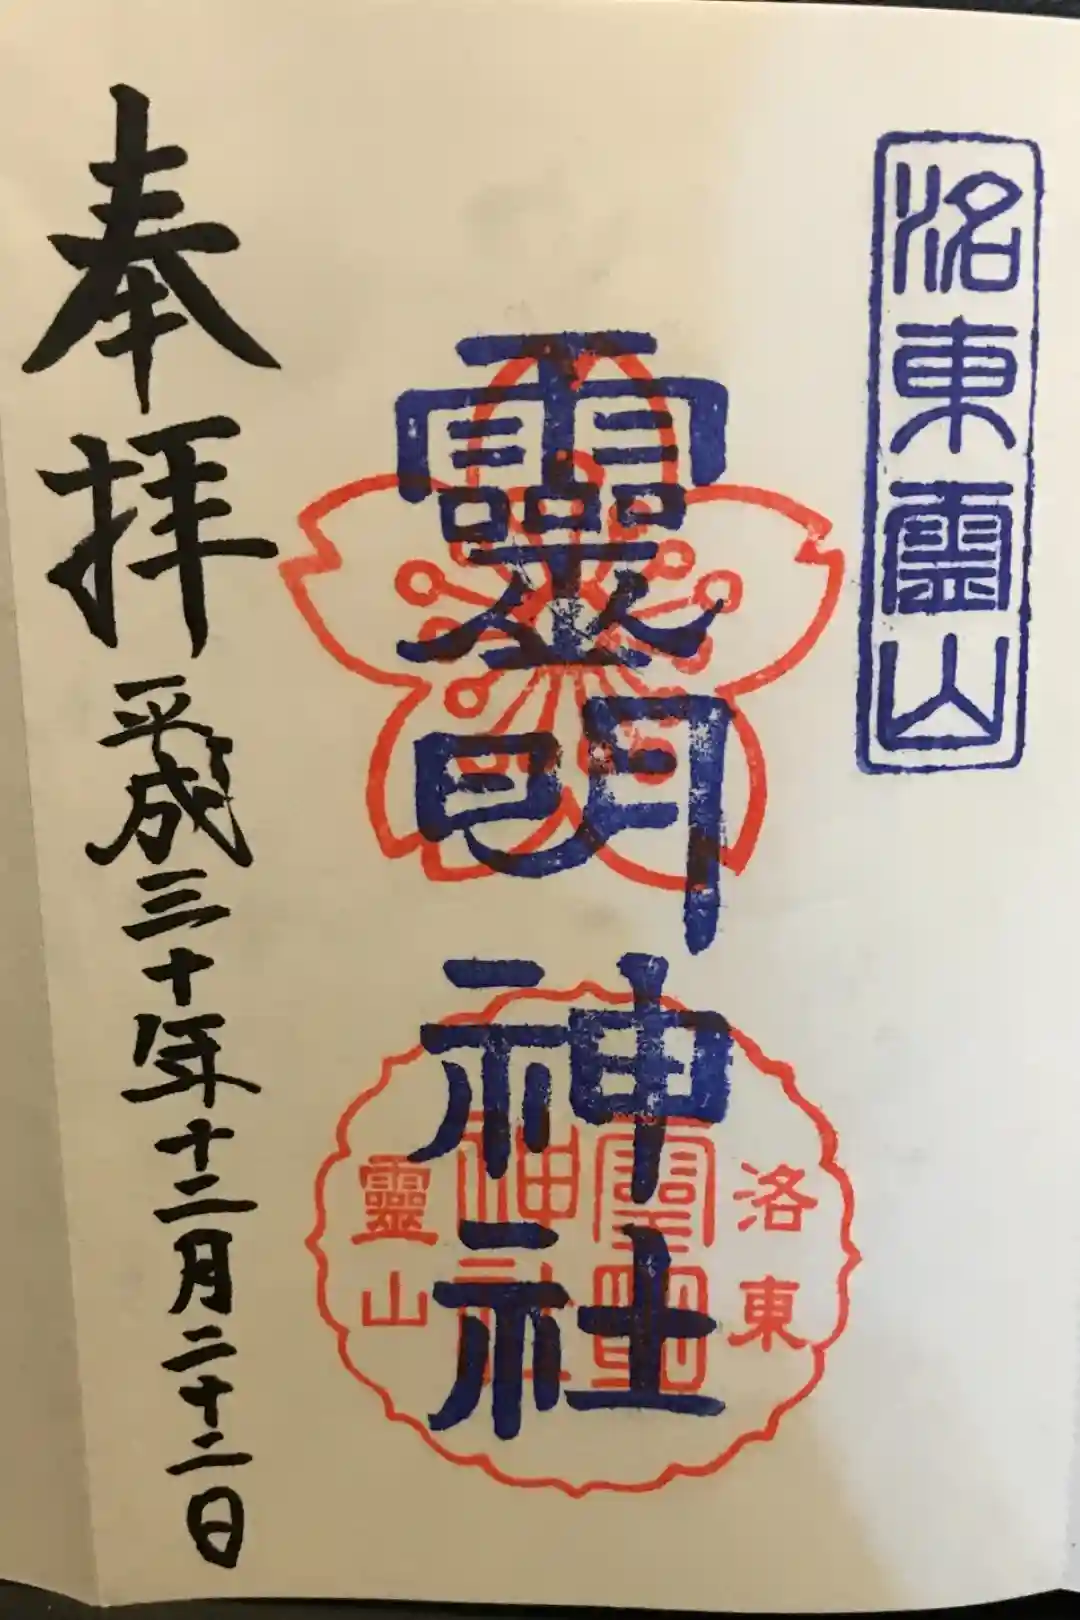 洛東霊山
靈明神社
洛東
靈明
神社
靈山
奉拝
平成三十年十二月二十二日